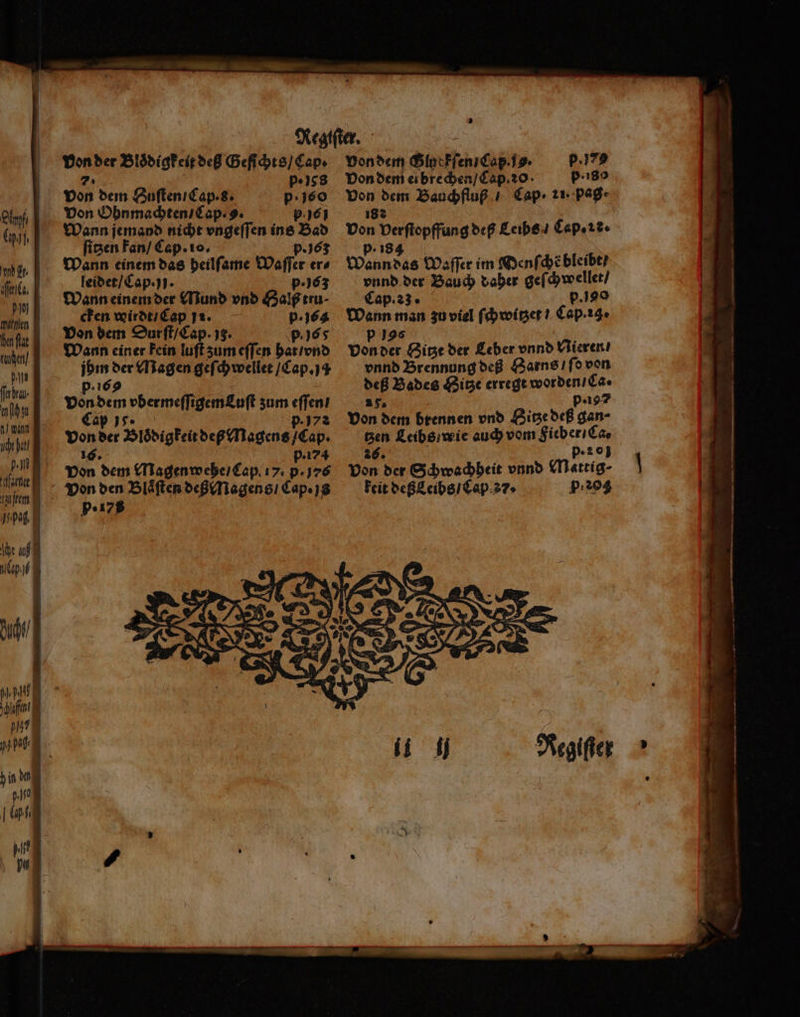 Regiſter.
Von der Blödigkeit deß Geſichts/ Cap.
7. p.158
Von dem Huſten/ Cap.8. p.160
Von Ohnmachten/ Cap.9. p.161
Wann jemand nicht vngeſſen ins Bad
ſitzen kan/ Cap.10. p.163
Wann einem das heilſame Waſſer er⸗
leidet/ Cap.11. p.163
Wann einem der Mund vnd Halß tru⸗
cken wirdt/ Cap 12. p.164
Von dem Durſt/ Cap.13. p.165
Wann einer kein luſt zum eſſen hat/ vnd
jhm der Magen geſchwellet / Cap.14
p.169
Von dem vbermeſſigem Luſt zum eſſen/
Cap 15. p.172
Von der Blödigkeit deß Magens / Cap.
16. p.174
Von dem Magenwehe/ Cap.17. p.176
Von den Bläſten deß Magens/ Cap.18
p.178
Von dem Gluckſen/ Cap.19. p.179
Von dem erbrechen/ Cap.20. p.180
Von dem Bauchfluß / Cap. 21. pag.
182
Von Verſtopffung deß Leibs/ Cap.22.
p.184
Wann das Waſſer im Menſchẽ bleibt/
vnnd der Bauch daher geſchwellet/
Cap.23. p.190
Wann man zu viel ſchwitzet / Cap.24.
p 196
Von der Hitze der Leber vnnd Nieren/
vnnd Brennung deß Harns / ſo von
deß Bades Hitze erregt worden/ Ca.
25. p.197
Von dem brennen vnd Hitze deß gan⸗
tzen Leibs/ wie auch vom Fieber/ Ca.
26. p.201
Von der Schwachheit vnnd Mattig⸗
keit deß Leibs/ Cap.27. p.204
ii ij Regiſter